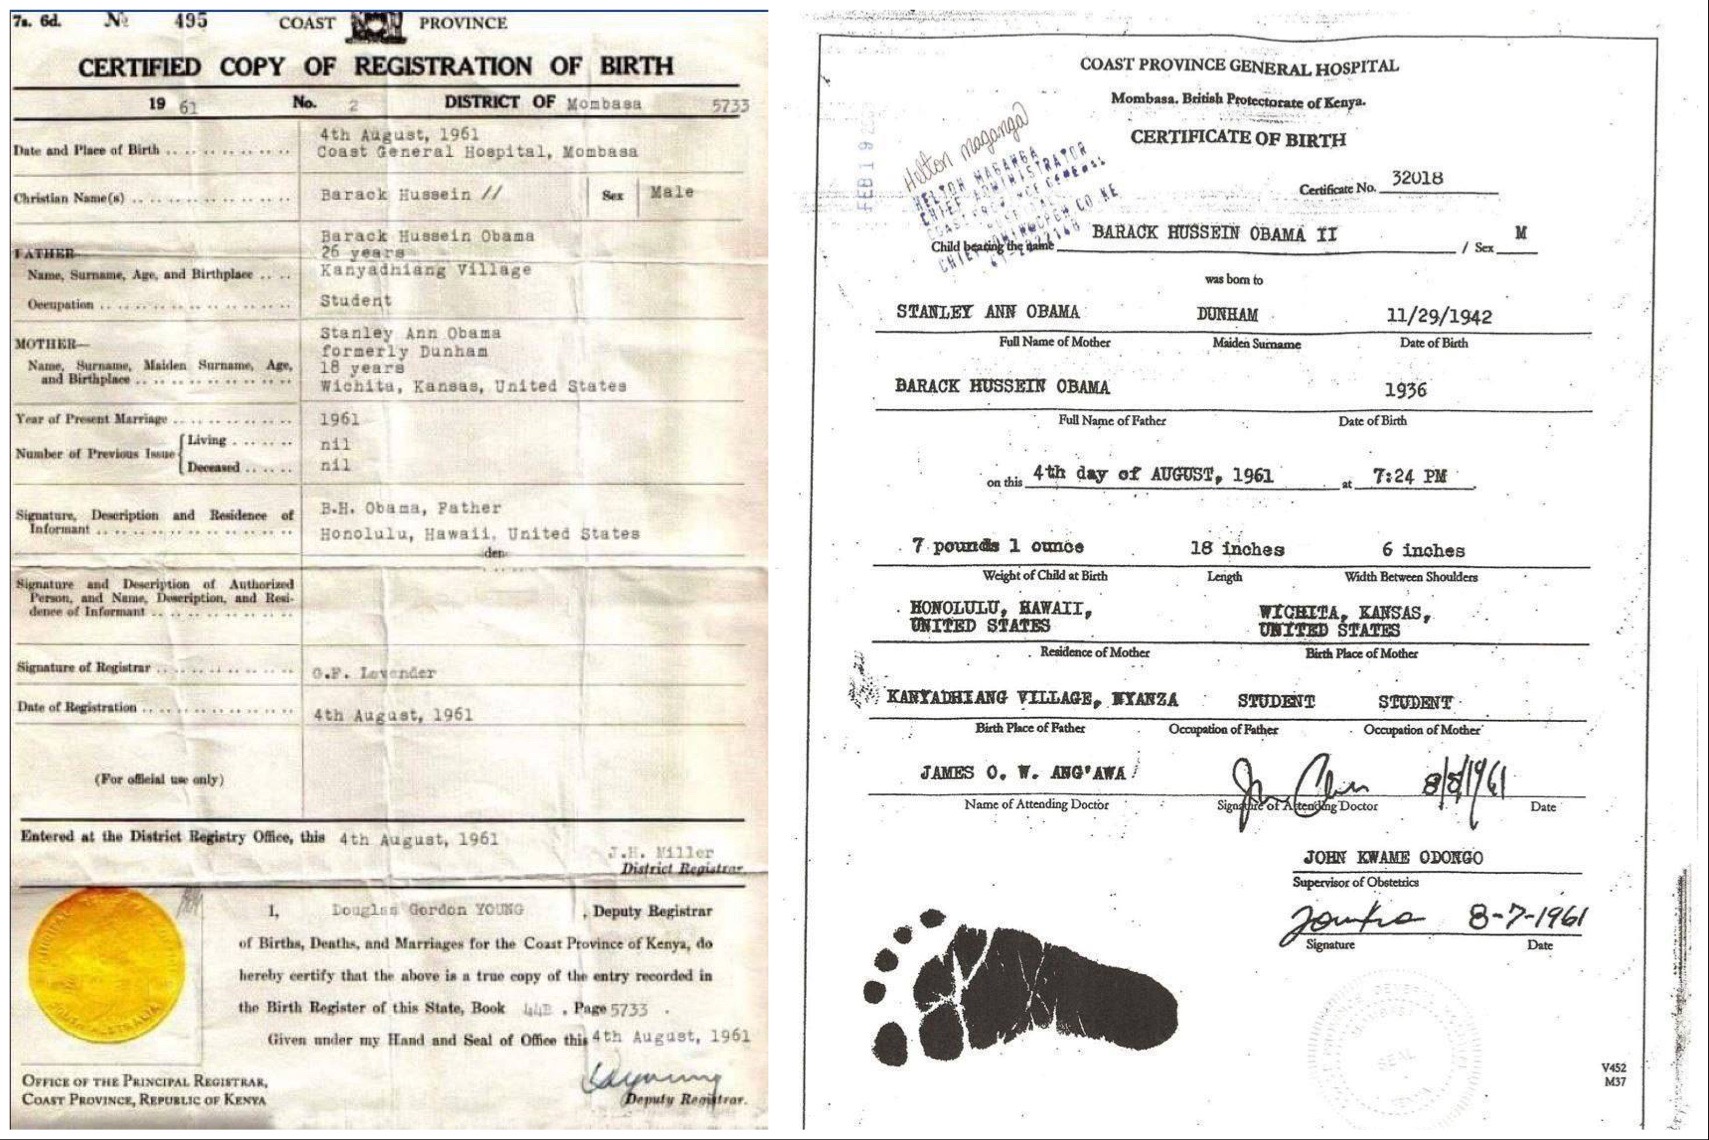 7s. 6d. № 495 COAST PROVINCE
CERTIFIED COPY OF REGISTRATION OF BIRTH
19 61 No. 2 DISTRICT OF Mombasa 5733
Date and Place of Birth 4th August, 1961
Coast General Hospital, Mombasa
Christian Name(s) Barack Hussein // Sex Male
FATHER—
Name, Surname, Age, and Birthplace
Barack Hussein Obama
26 years
Kanyadhiang Village
Occupation Student
MOTHER—
Name, Surname, Maiden Surname, Age,
and Birthplace
Stanley Ann Obama
formerly Dunham
18 years
Wichita, Kansas, United States
Year of Present Marriage 1961
Number of Previous Issue
Living nil
Deceased nil
Signature, Description and Residence of
Informant
B.H. Obama, Father
Honolulu, Hawaii, United States
den
Signature and Description of Authorized
Person, and Name, Description, and Resi-
dence of Informant
Signature of Registrar
Date of Registration 4th August, 1961
(For official use only)
Entered at the District Registry Office, this 4th August, 1961
J.H. Miller
District Registrar.
I, Douglas Gordon YOUNG, Deputy Registrar
of Births, Deaths, and Marriages for the Coast Province of Kenya, do
hereby certify that the above is a true copy of the entry recorded in
the Birth Register of this State, Book 44B, Page 5733.
Given under my Hand and Seal of Office this 4th August, 1961
Deputy Registrar.
OFFICE OF THE PRINCIPAL REGISTRAR,
COAST PROVINCE, REPUBLIC OF KENYA
COAST PROVINCE GENERAL HOSPITAL
Mombasa. British Protectorate of Kenya.
CERTIFICATE OF BIRTH
Helton Maganga
HELTON MAGANGA
CHIEF ADMINISTRATOR
Certificate No. 32018
Child bearing the name BARACK HUSSEIN OBAMA II / Sex M
was born to
STANLEY ANN OBAMA DUNHAM 11/29/1942
Full Name of Mother Maiden Surname Date of Birth
BARACK HUSSEIN OBAMA 1936
Full Name of Father Date of Birth
on this 4th day of AUGUST, 1961 at 7:24 PM
7 pounds 1 ounce 18 inches 6 inches
Weight of Child at Birth Length Width Between Shoulders
HONOLULU, HAWAII, WICHITA, KANSAS,
UNITED STATES UNITED STATES
Residence of Mother Birth Place of Mother
KANYADHIANG VILLAGE, NYANZA STUDENT STUDENT
Birth Place of Father Occupation of Father Occupation of Mother
JAMES O. W. ANG'AWA 8/8/1961
Name of Attending Doctor Signature of Attending Doctor Date
JOHN KWAME ODONGO
Supervisor of Obstetrics
8-7-1961
Signature Date
SEAL
V452
M37